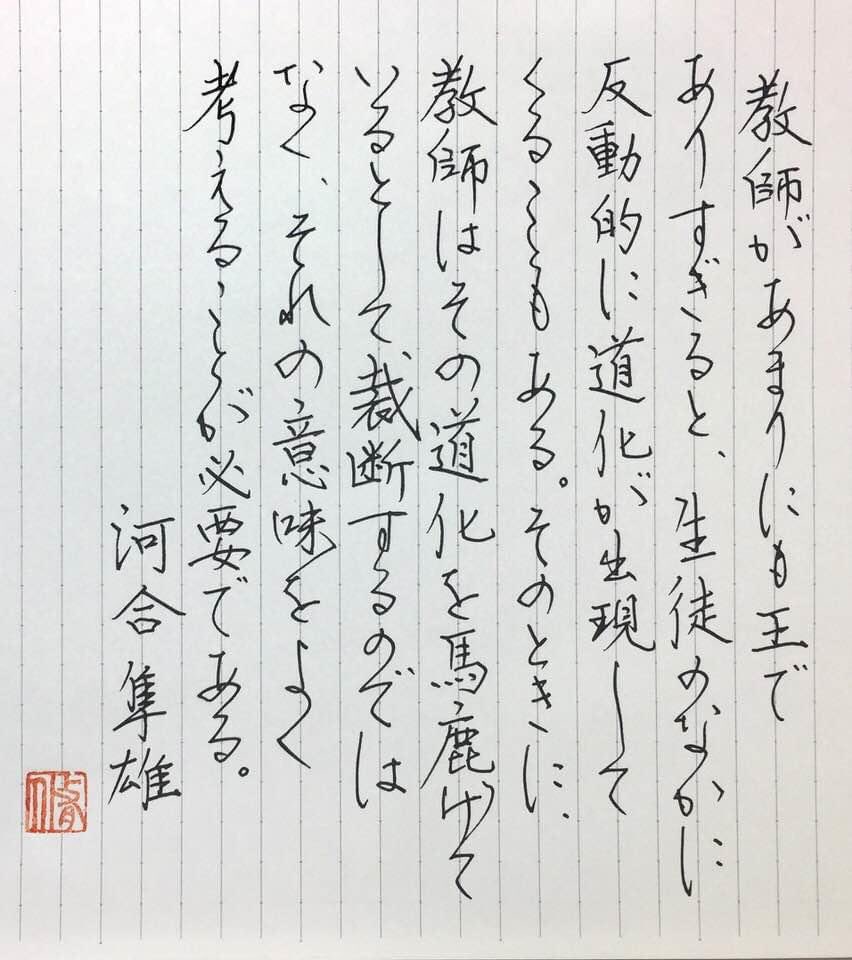 教師があまりにも王で
ありすぎると、生徒のなかに
反動的に道化が出現して
くることもある。そのときに、
教師はその道化を馬鹿げて
いるとして裁断するのでは
なく、それの意味をよく
考えることが必要である。
河合隼雄